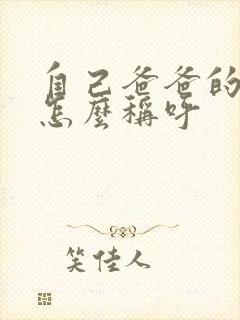 自己爸爸的
怎麼稱呼
笑佳人